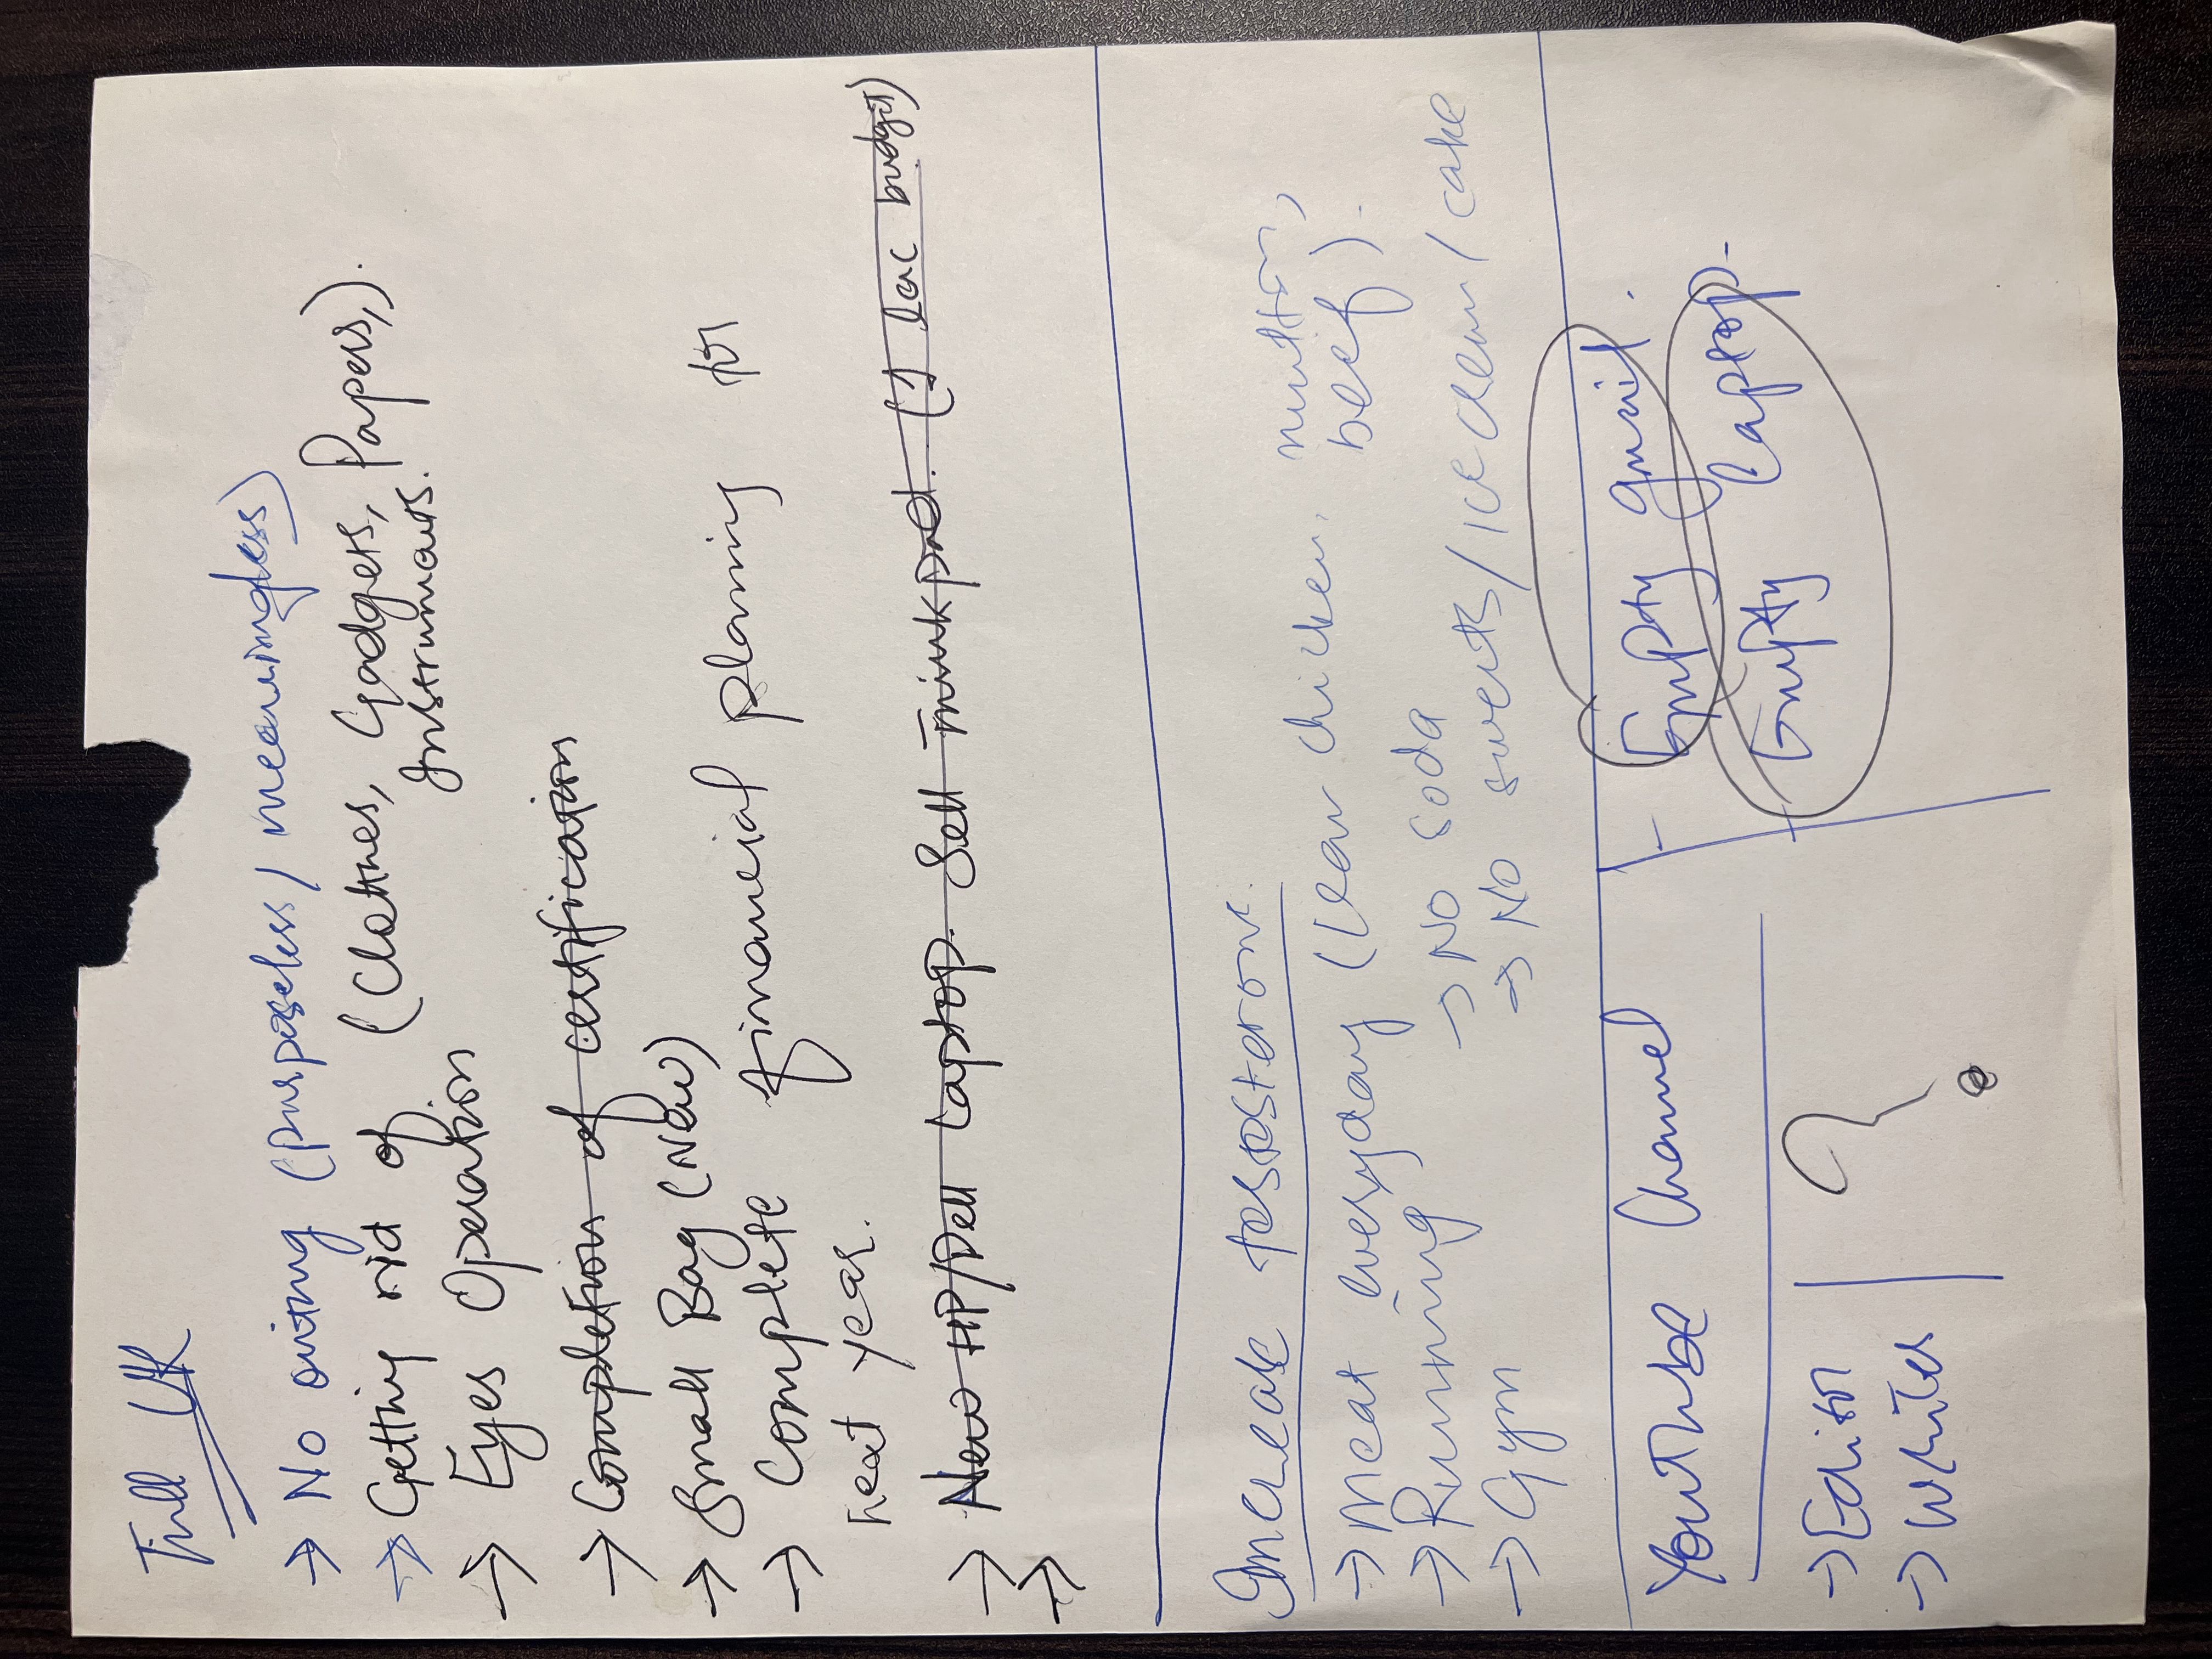 Till UK
→ No outing (purposeless / meaningless)
→ Getting rid of (Clothes, Gadgets, Papers,).
Instruments.
→ Eyes Operation
→ Completion of certification
→ Small Bag (New)
→ Complete financial planing for
next year.
→ New HP/Dell Laptop. Sell Thinkpad. (1 lac budget)
→
Increase testosterone.
→ Meat everyday (lean chicken, mutton,
beef).
→ Running → No soda
→ Gym → No sweets / ice cream / cake
YouTube Channel
- Empty gmail.
Empty Laptop.
→ Editor
→ Writer
?